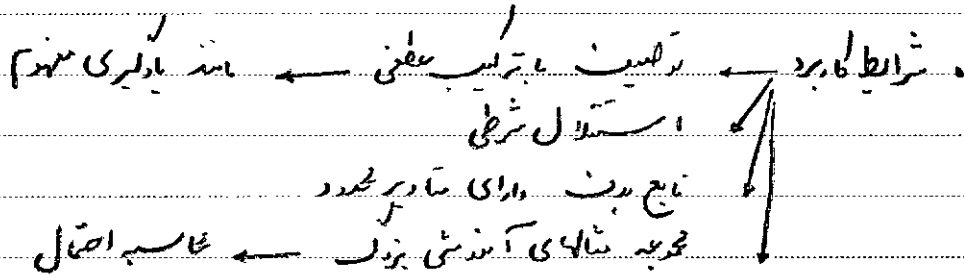 . شرایط کاربرد ← توصیف با ترکیب عطفی ← مانند یادگیری مفهوم
استقلال شرطی
تابع هدف دارای مقادیر محدود
مجموعه مثالهای آموزشی بزرگ ← محاسبه احتمال